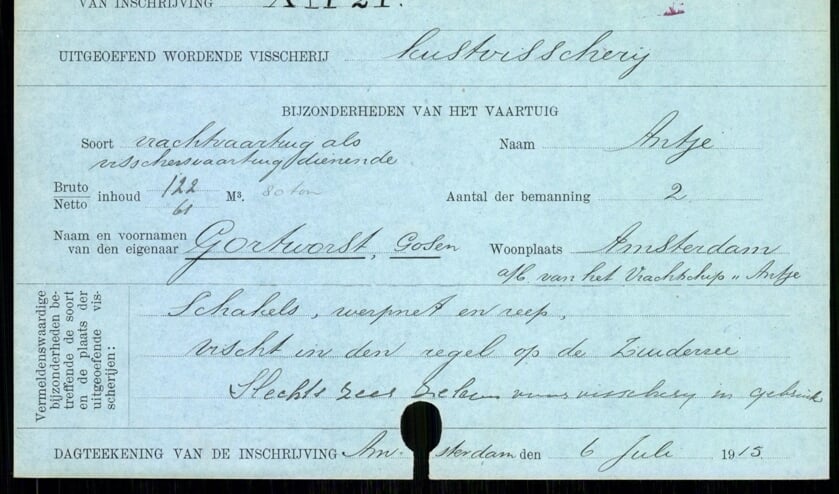 VAN INSCHRIJVING
UITGEOEFEND WORDENDE VISSCHERIJ kustvisscherij
BIJZONDERHEDEN VAN HET VAARTUIG
Soort vrachtvaartuig als Naam Antje
visschersvaartuig dienende
Bruto 122
inhoud M³. 80 ton Aantal der bemanning 2
Netto 61
Naam en voornamen
van den eigenaar Gortworst, Gosen Woonplaats Amsterdam
a/b van het Vrachtschip „ Antje
Vermeldenswaardige
bijzonderheden be-
treffende de soort
en de plaats der
uitgeoefende vis-
scherijen:
Schakels, werpnet en reep,
vischt in den regel op de Zuiderzee
Slechts zeer zelden voor visscherij in gebruik
DAGTEEKENING VAN DE INSCHRIJVING Amsterdam den 6 Juli 1913.